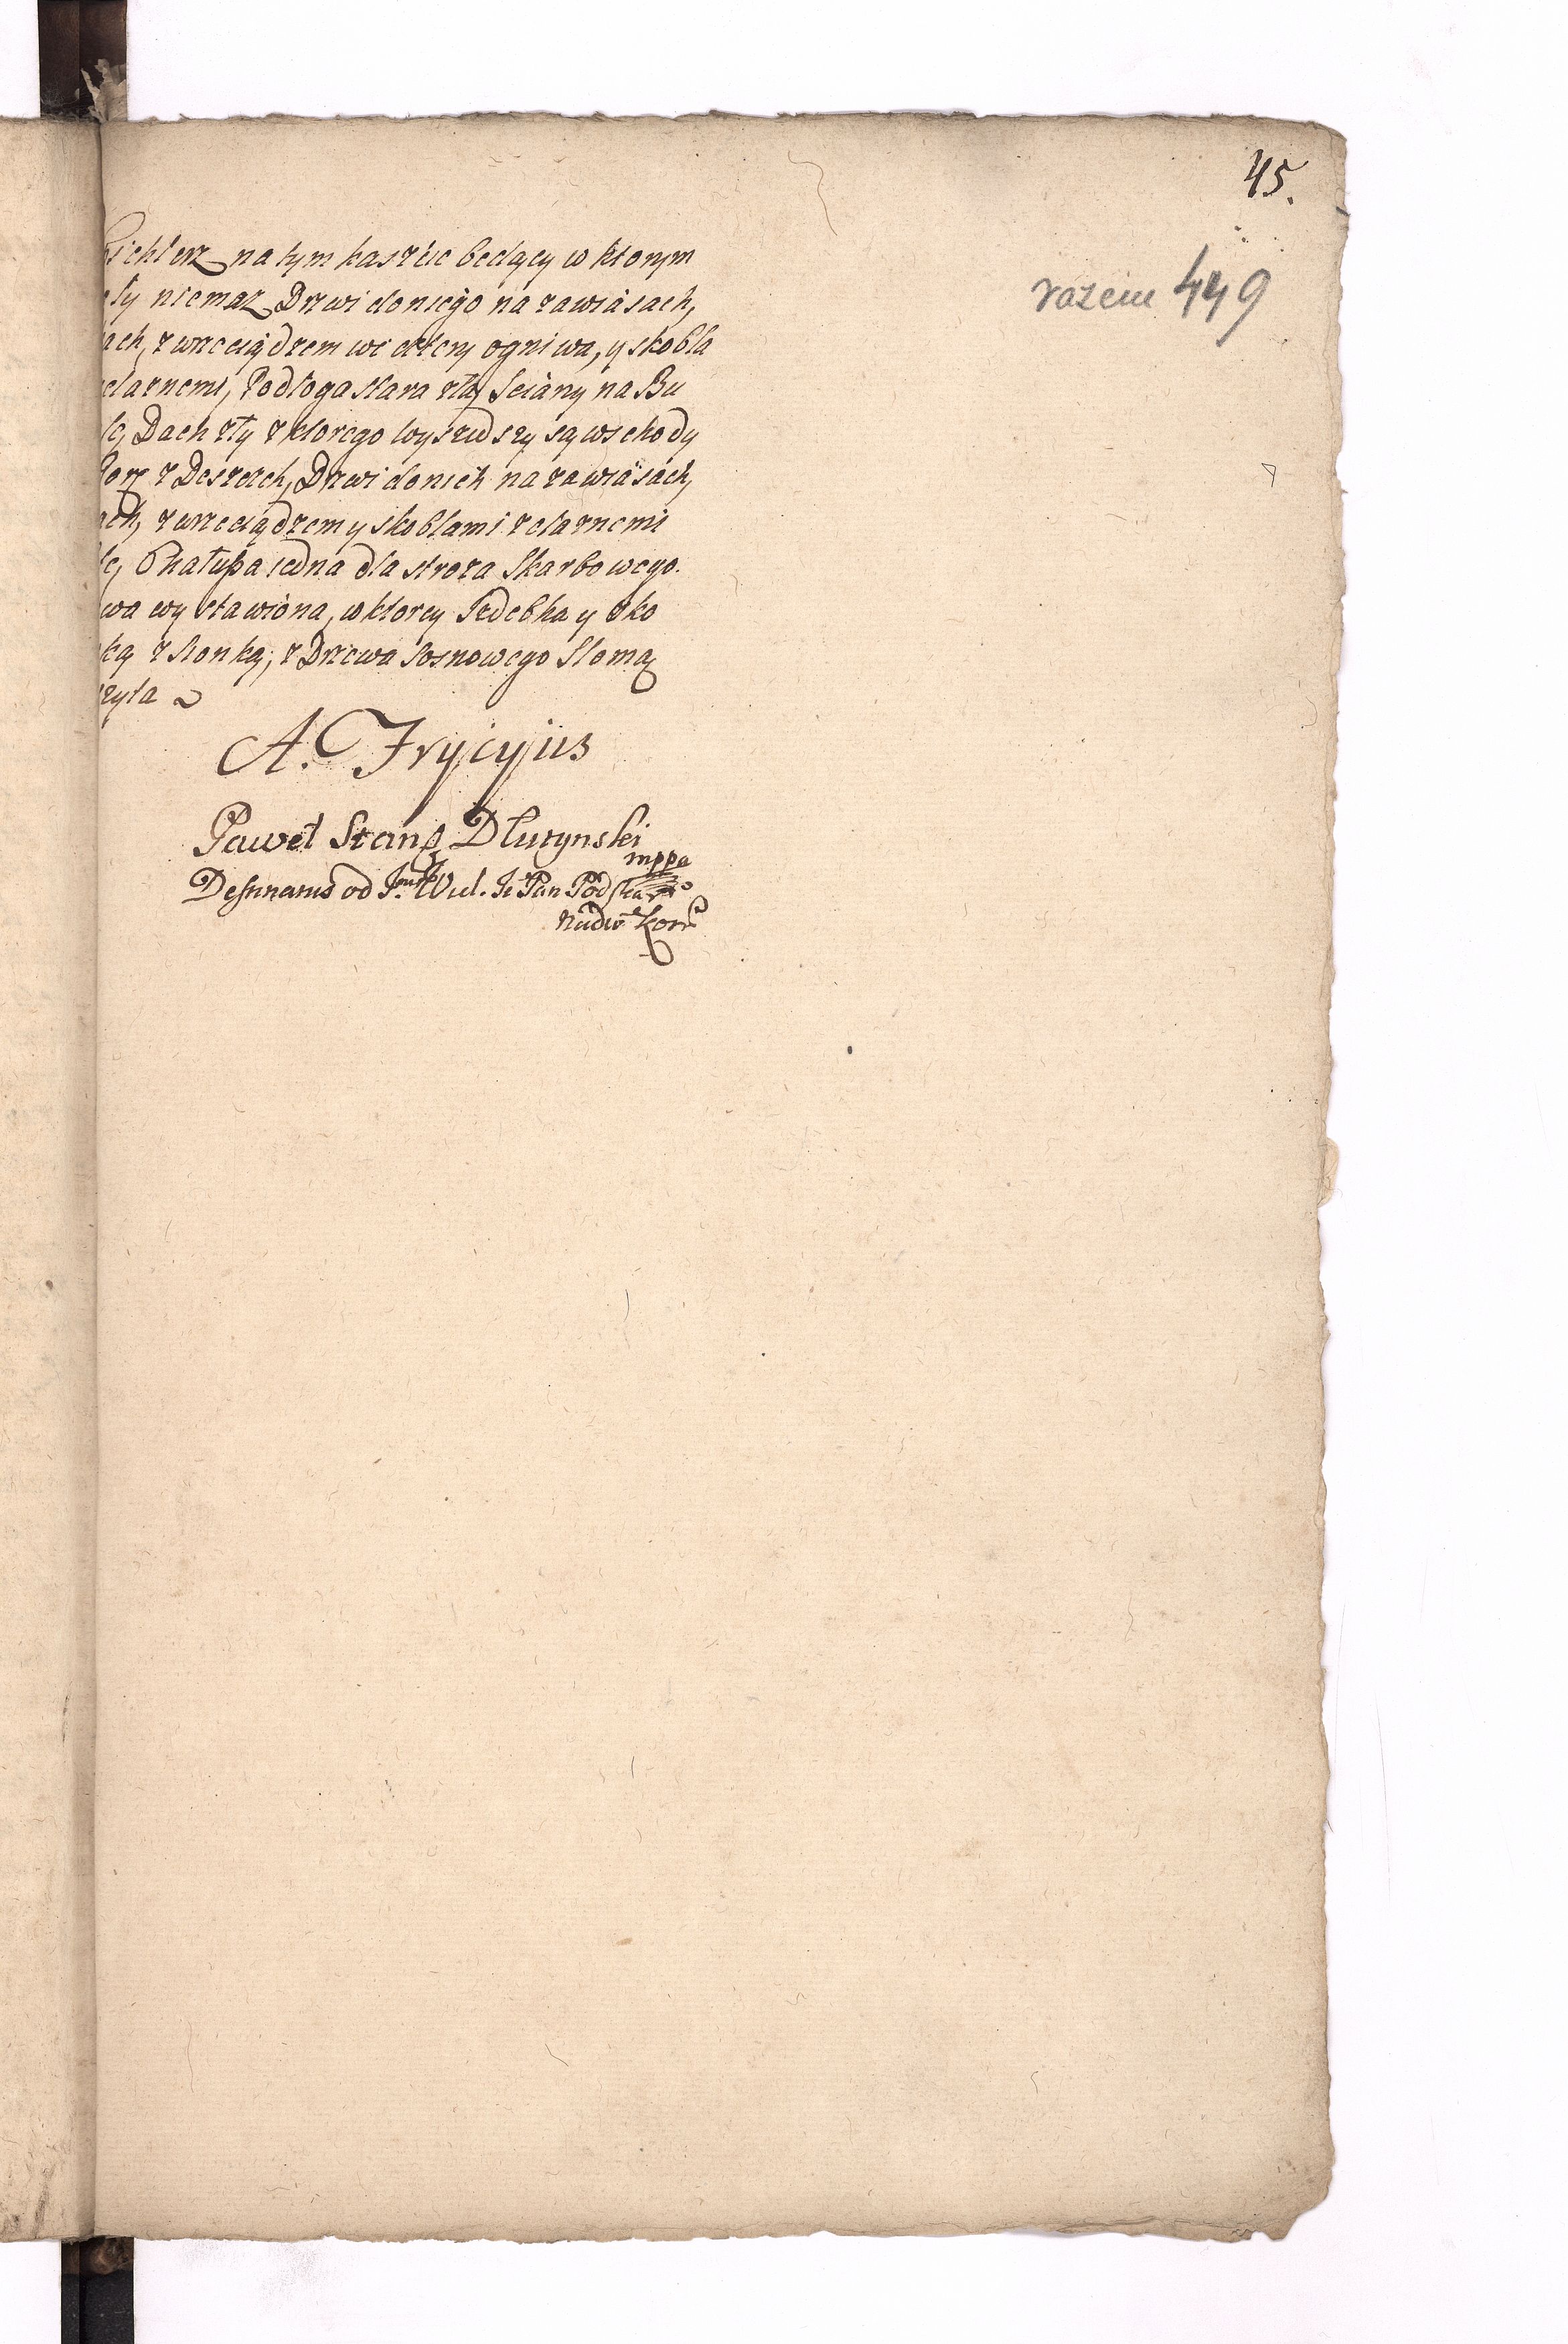 45.
razem 449
Spichlerz na tym kaszcie będący w ktorym
niemasz Drzwi doniego na zawiasach,
z wrzeciądzem we cztery ogniwa, y skobla
Podłoga stara zła, Sciany na Bu
Dach zły z ktorego wyszedszy są wschody
z Deszczek, Drzwi donich na zawiasach,
z wrzeciądzem y skoblami zelaznemi
Chałupa iedna dla stroza Skarbowego.
wystawiona, wktorey Izdebka y zko
z Sionką, z Drzewa Sosnowego Słomą
szyta
A. Frycyjus
Paweł Stanis Dłuzynski
mppa
Destinatus od Jmści Wiel. Je Pan Podskar
Nadw Kor